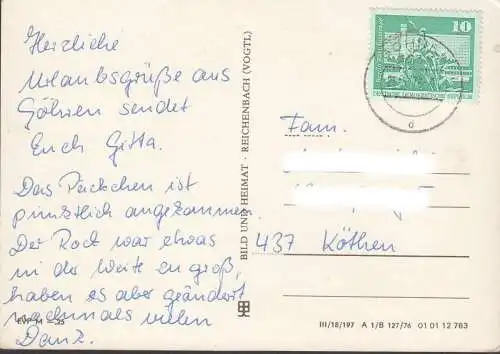 Herzliche
Urlaubsgrüße aus
Göhren sendet
Euch Gitta.
Das Päckchen ist
pünktlich angekommen.
Der Rock war etwas
in der Weite zu groß,
haben es aber geändert
nochmals vielen
Dank.
EVP M -,35
BILD UND HEIMAT · REICHENBACH (VOGTL)
10
DEUTSCHE DEMOKRATISCHE REPUBLIK
Fam.
437 Köthen
III/18/197 A 1/B 127/76 01 01 12 763